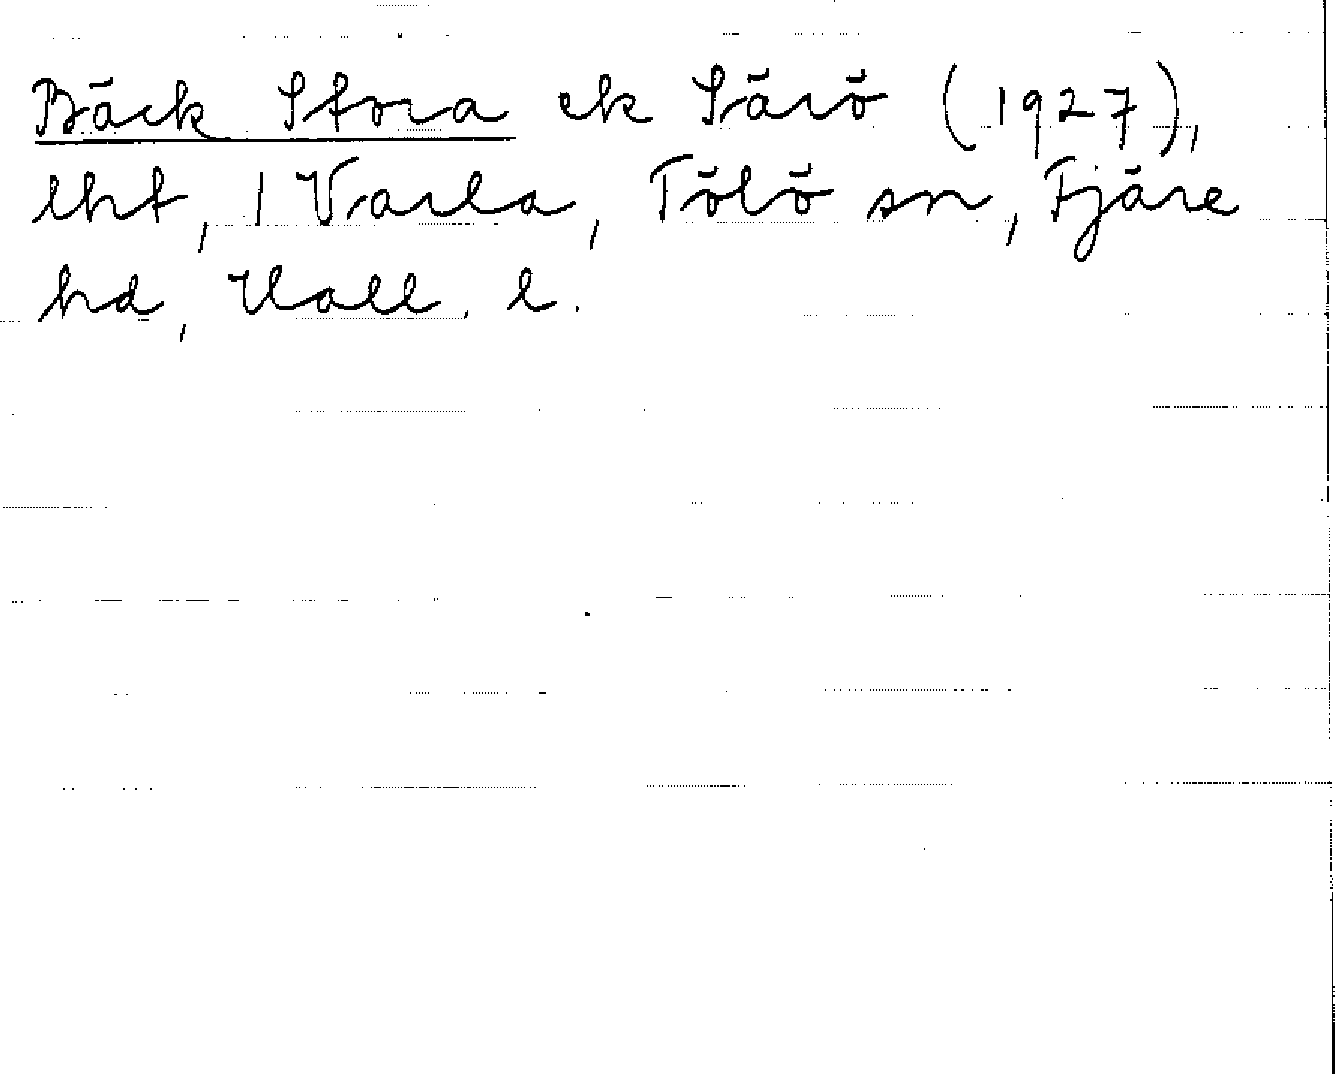 Bäck Stora ek Särö (1927),
lht, 1 Varla, Tölö sn, Fjäre
hd, Hall. l.